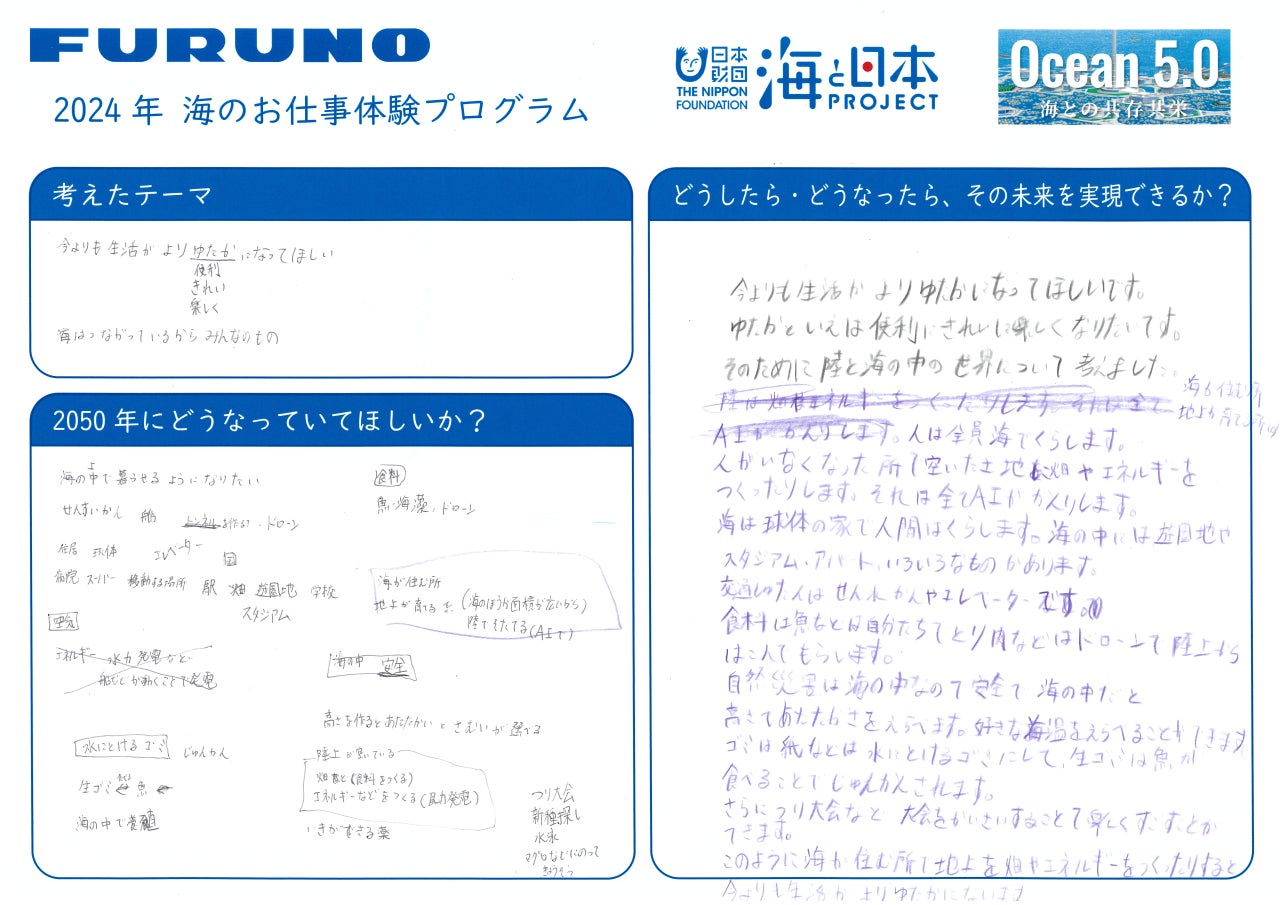 FURUNO
2024年 海のお仕事体験プログラム
日本
財団
THE NIPPON
FOUNDATION
海と日本
PROJECT
Ocean 5.0
海との共存共栄
考えたテーマ
今よりも生活が よりゆたかになってほしい
便利
きれい
楽しく
海はつながっているから みんなのもの
2050年にどうなっていてほしいか？
海の中で暮らせる ようになりたい
せんすいかん 船 を作る ・ドローン
住居 球体 エレベーター 国
病院 スーパー 移動する場所 駅 畑 遊園地 学校
スタジアム
空気
エネルギー 水力発電など
船などが動くことで発電
水にとけるゴミ じゅんかん
生ゴミ 魚
海の中で養殖
食料
魚・海藻・ドローン
海が住む所
地上が育てる (海のほうが面積が広いから)
陸でそだてる(AIで)
海の中 安全
高さを作るとあたたかい と さむいが選べる
陸上が空いている
畑など(食料をつくる)
エネルギーなどをつくる(風力発電)
いきができる薬
つり大会
新種探し
水泳
マグロなどにのって
きょうそう
どうしたら・どうなったら、その未来を実現できるか？
今よりも生活が よりゆたかになってほしいです。
ゆたかといえば便利にきれいに楽しくなりたいです。
そのために陸と海の中の世界について考えました。
陸は畑やエネルギーをつくったりします。それは全て
海が住む所
地上が育てる所は
AIがかんりします。人は全員海でくらします。
人がいなくなった所で空いた土地は畑やエネルギーを
つくったりします。それは全てAIがかんりします。
海は球体の家で人間はくらします。海の中には遊園地や
スタジアム、アパート、いろいろなものがあります。
交通しゅだんはせん水かんやエレベーターです。
食料は魚などは自分たちでとり肉などはドローンで陸上から
はこんでもらします。
自然災害は海の中なので安全で海の中だと
高さであたたかさをえらべます。好きな海温をえらべることができます
ゴミは紙などは水にとけるゴミにして、生ゴミは魚が
食べることでじゅんかんされます。
さらにつり大会など 大会をかいさいすることで楽しくすごすことが
できます。
このように海が住む所で地上を畑やエネルギーをつくったりすると
今よりも生活がよりゆたかになります